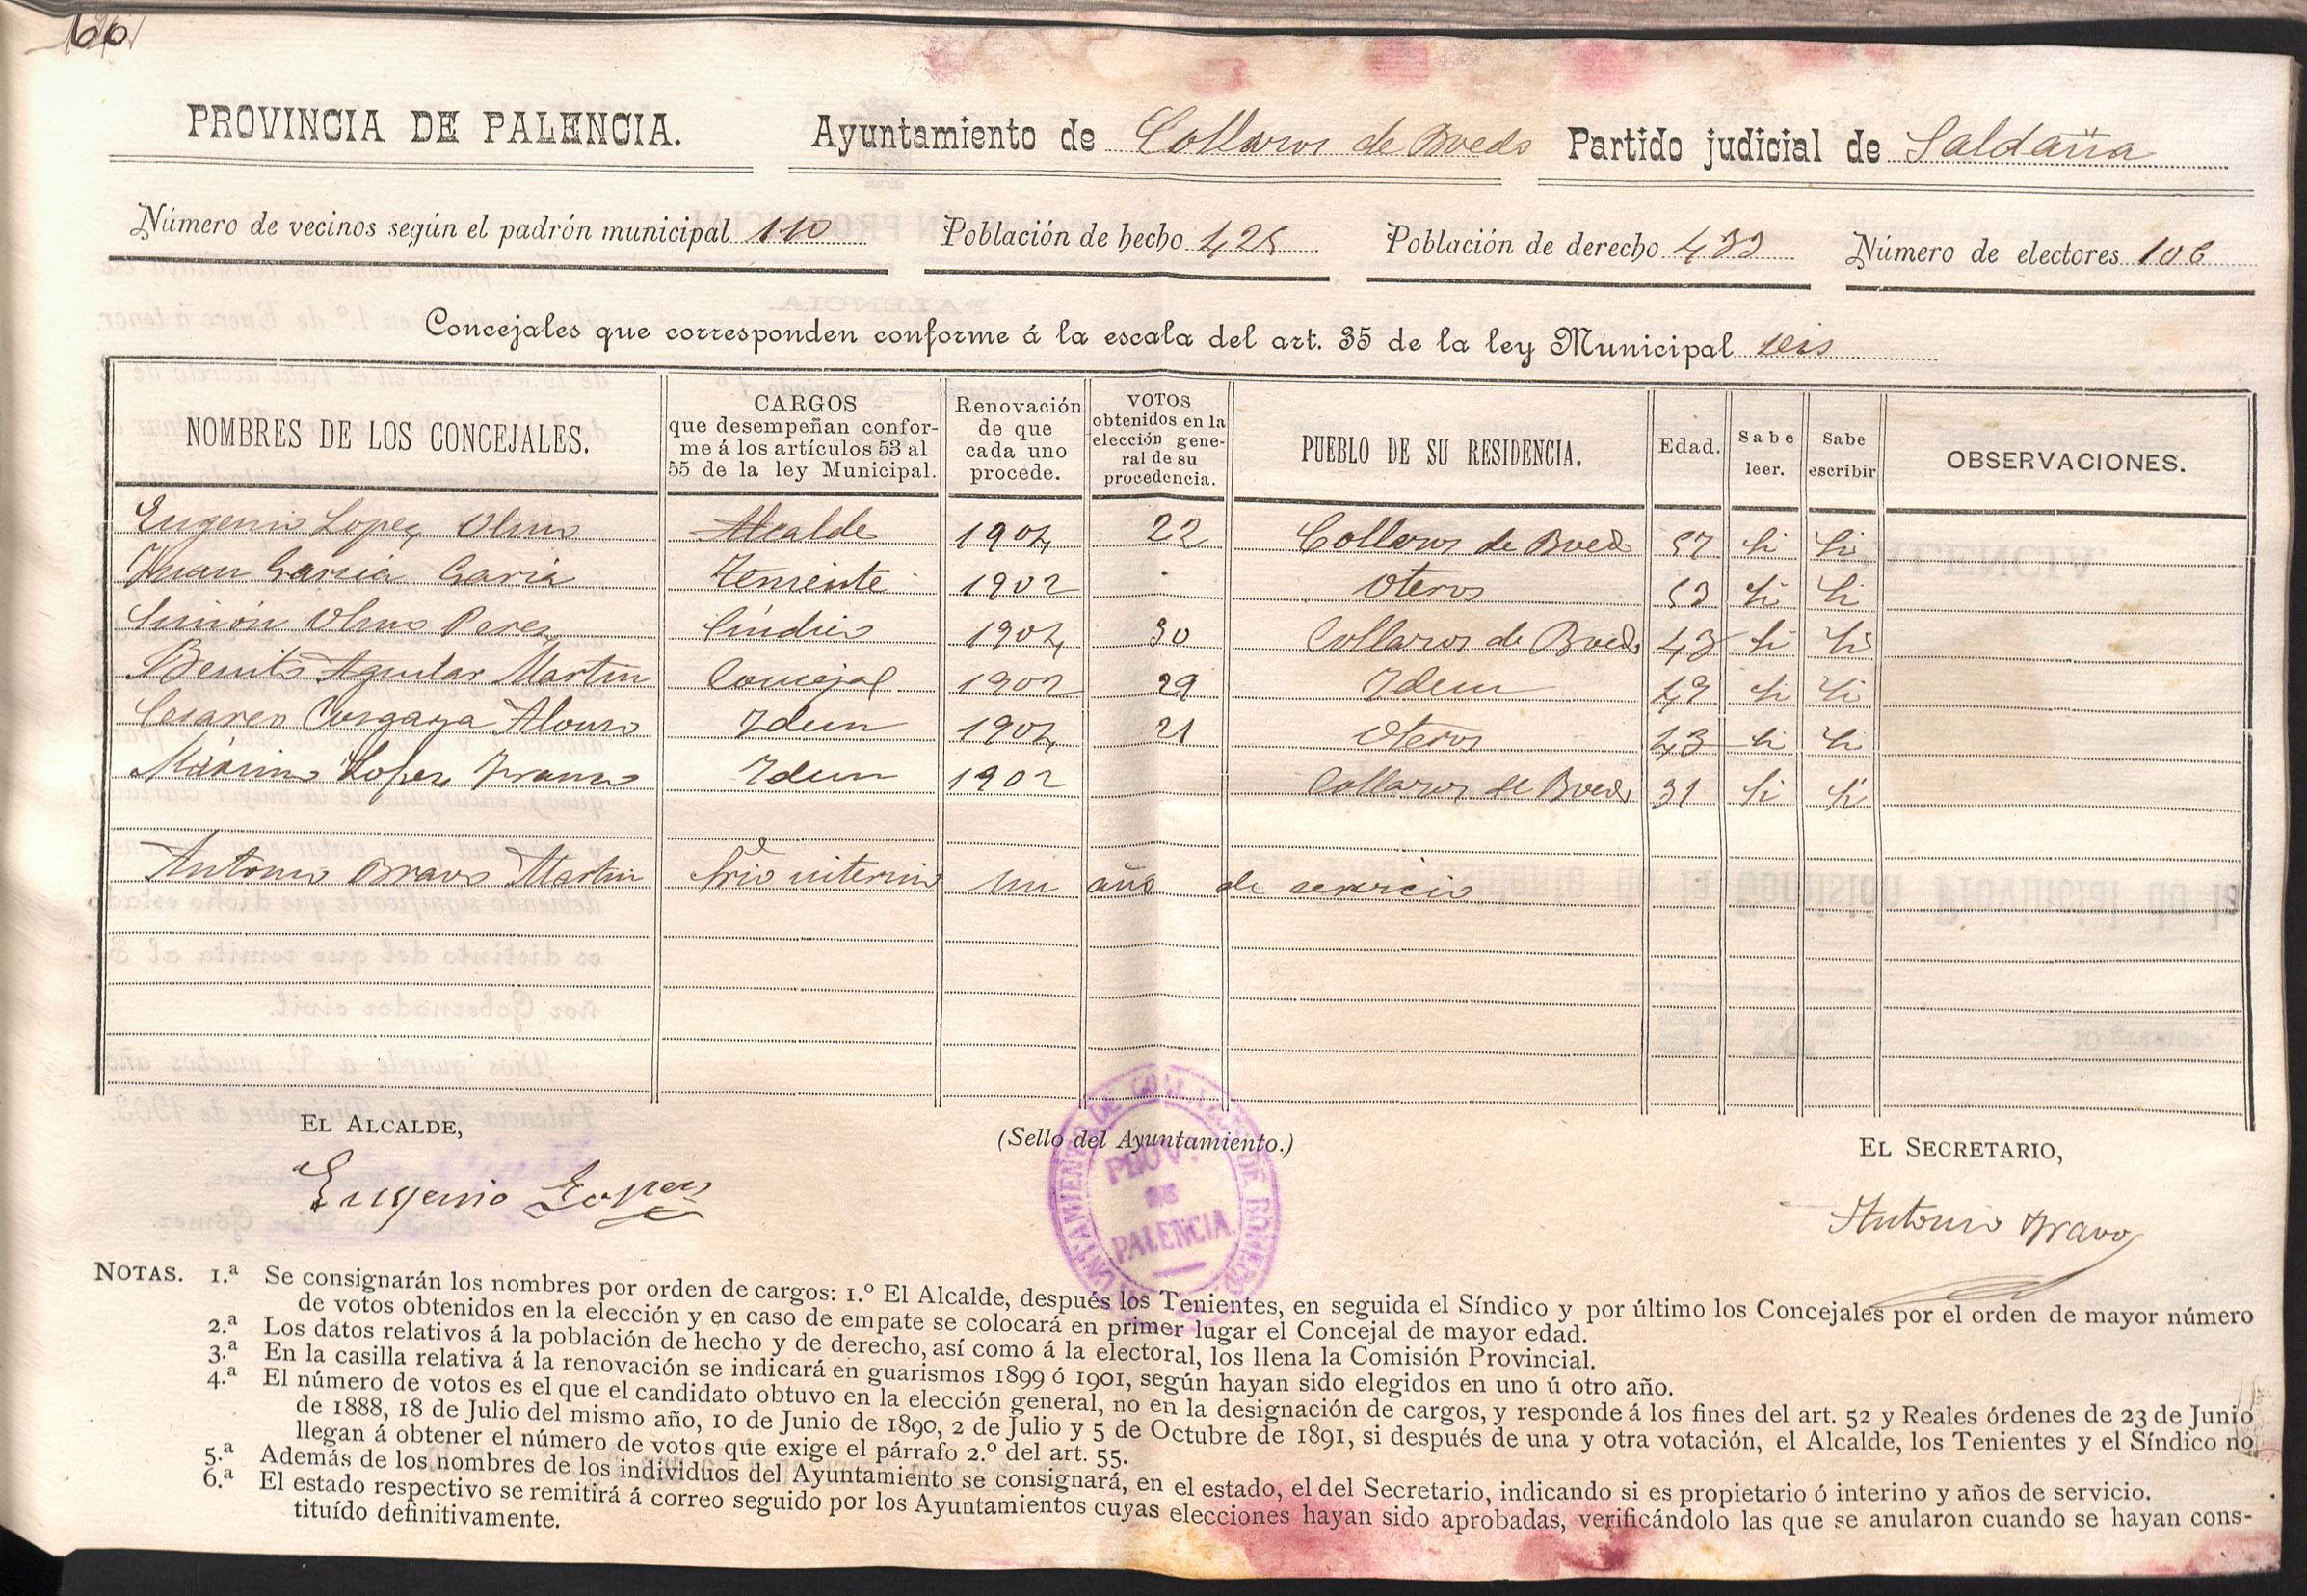 60
PROVINCIA DE PALENCIA. Ayuntamiento de Collazos de Boedo Partido judicial de Saldaña
Número de vecinos según el padrón municipal 110 Población de hecho 425 Población de derecho 433 Número de electores 106
Concejales que corresponden conforme á la escala del art. 35 de la ley Municipal seis
NOMBRES DE LOS CONCEJALES.
CARGOS
que desempeñan confor-
me á los artículos 53 al
55 de la ley Municipal.
Renovación
de que
cada uno
procede.
VOTOS
obtenidos en la
elección gene-
ral de su
procedencia.
PUEBLO DE SU RESIDENCIA.
Edad.
Sabe
leer.
Sabe
escribir
OBSERVACIONES.
Eugenio Lopez Olmo Alcalde 1904 22 Collazos de Boedo 57 Si Si
Juan Garcia Garcia Teniente 1902 Oteros 53 Si Si
Simón Olmo Perez Síndico 1904 30 Collazos de Boedo 43 Si Si
Benito Aguilar Martin Concejal 1902 29 Idem 49 Si Si
Alonso Idem 1904 21 Oteros 43 Si Si
Máximo Lopez Idem 1902 Collazos de Boedo 31 Si Si
Antonio Bravo Martin Srio interino un año de servicio
EL ALCALDE,
(Sello del Ayuntamiento.)
EL SECRETARIO,
PROV.
DE
PALENCIA
Eugenio Lopez
Antonio Bravo
NOTAS. 1.ª Se consignarán los nombres por orden de cargos: 1.º El Alcalde, después los Tenientes, en seguida el Síndico y por último los Concejales por el orden de mayor número
de votos obtenidos en la elección y en caso de empate se colocará en primer lugar el Concejal de mayor edad.
2.ª Los datos relativos á la población de hecho y de derecho, así como á la electoral, los llena la Comisión Provincial.
3.ª En la casilla relativa á la renovación se indicará en guarismos 1899 ó 1901, según hayan sido elegidos en uno ú otro año.
4.ª El número de votos es el que el candidato obtuvo en la elección general, no en la designación de cargos, y responde á los fines del art. 52 y Reales órdenes de 23 de Junio
de 1888, 18 de Julio del mismo año, 10 de Junio de 1890, 2 de Julio y 5 de Octubre de 1891, si después de una y otra votación, el Alcalde, los Tenientes y el Síndico no
llegan á obtener el número de votos que exige el párrafo 2.º del art. 55.
5.ª Además de los nombres de los individuos del Ayuntamiento se consignará, en el estado, el del Secretario, indicando si es propietario ó interino y años de servicio.
6.ª El estado respectivo se remitirá á correo seguido por los Ayuntamientos cuyas elecciones hayan sido aprobadas, verificándolo las que se anularon cuando se hayan cons-
tituído definitivamente.